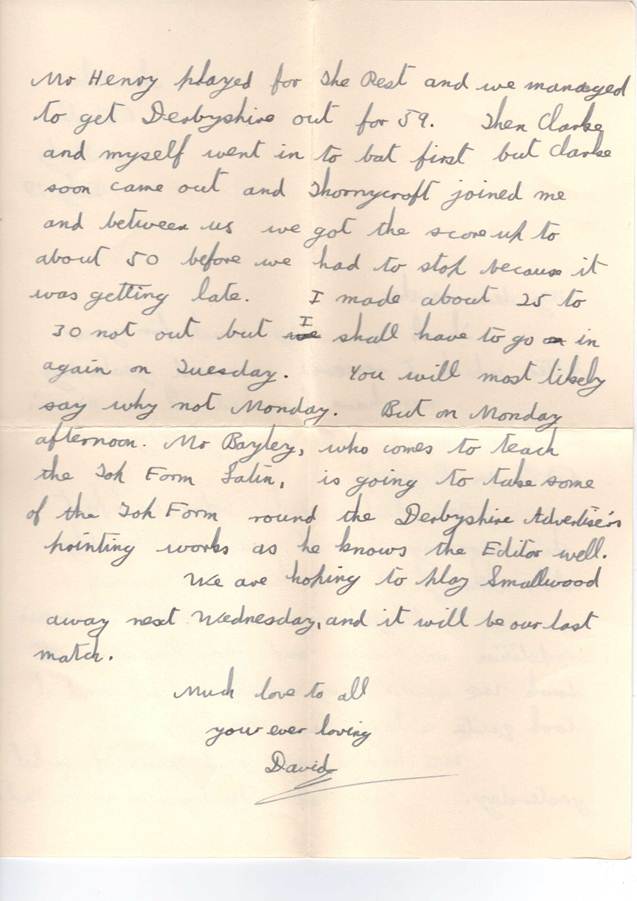 Mr Henry played for The Rest and we managed
to get Derbyshire out for 59. Then Clarke
and myself went in to bat first but Clarke
soon came out and Thornycroft joined me
and between us we got the score up to
about 50 before we had to stop because it
was getting late. I made about 25 to
30 not out but I shall have to go in
again on Tuesday. You will most likely
say why not Monday. But on Monday
afternoon. Mr Bayley, who comes to teach
the Toh Form Latin, is going to take some
of the Toh Form round the Derbyshire Advertise's
printing works as he knows the Editor well.
We are hoping to play Smallwood
away next Wednesday, and it will be our last
match.
Much love to all
your ever loving
David
yesterday.